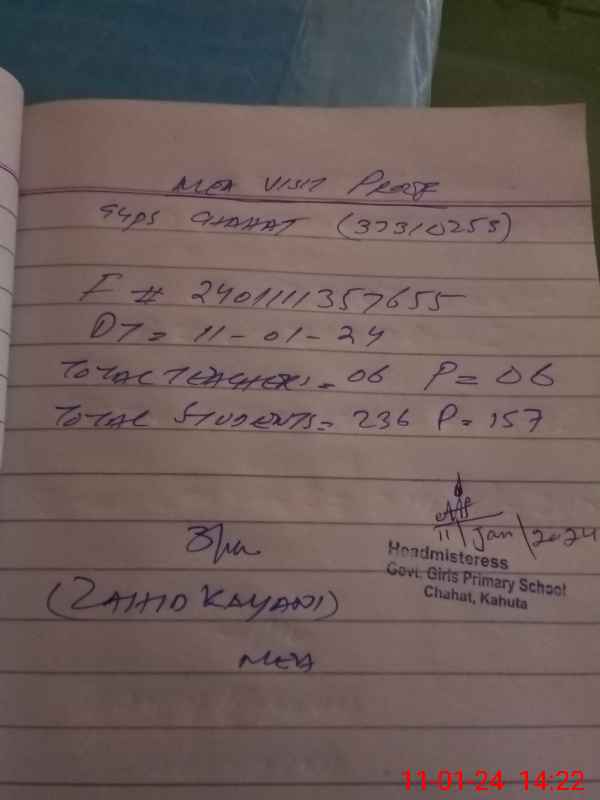 MEA VISIT PROOF
GGPS CHAHAT (37310253)
I # 2401111357655
DT = 11-01-24
TOTAL TEACHERS = 06 P = 06
TOTAL STUDENTS = 236 P = 157
11/Jan/2024
Headmisteress
Govt. Girls Primary School
Chahat, Kahuta
(ZAHID KAYANI)
MEA
11-01-24 14:22